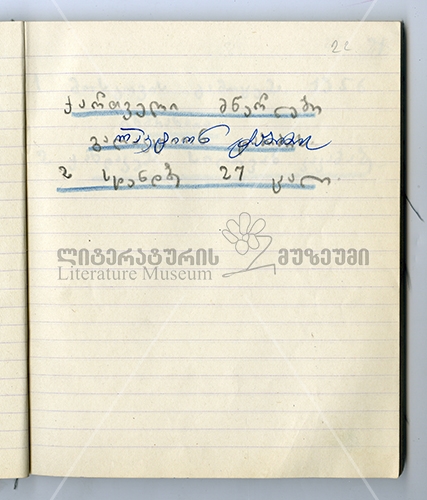 22
ქართველი მწერლები
გალაკტიონ
2 სტანდზე 27 ცალი.
ლიტერატურის მუზეუმი
Literature Museum